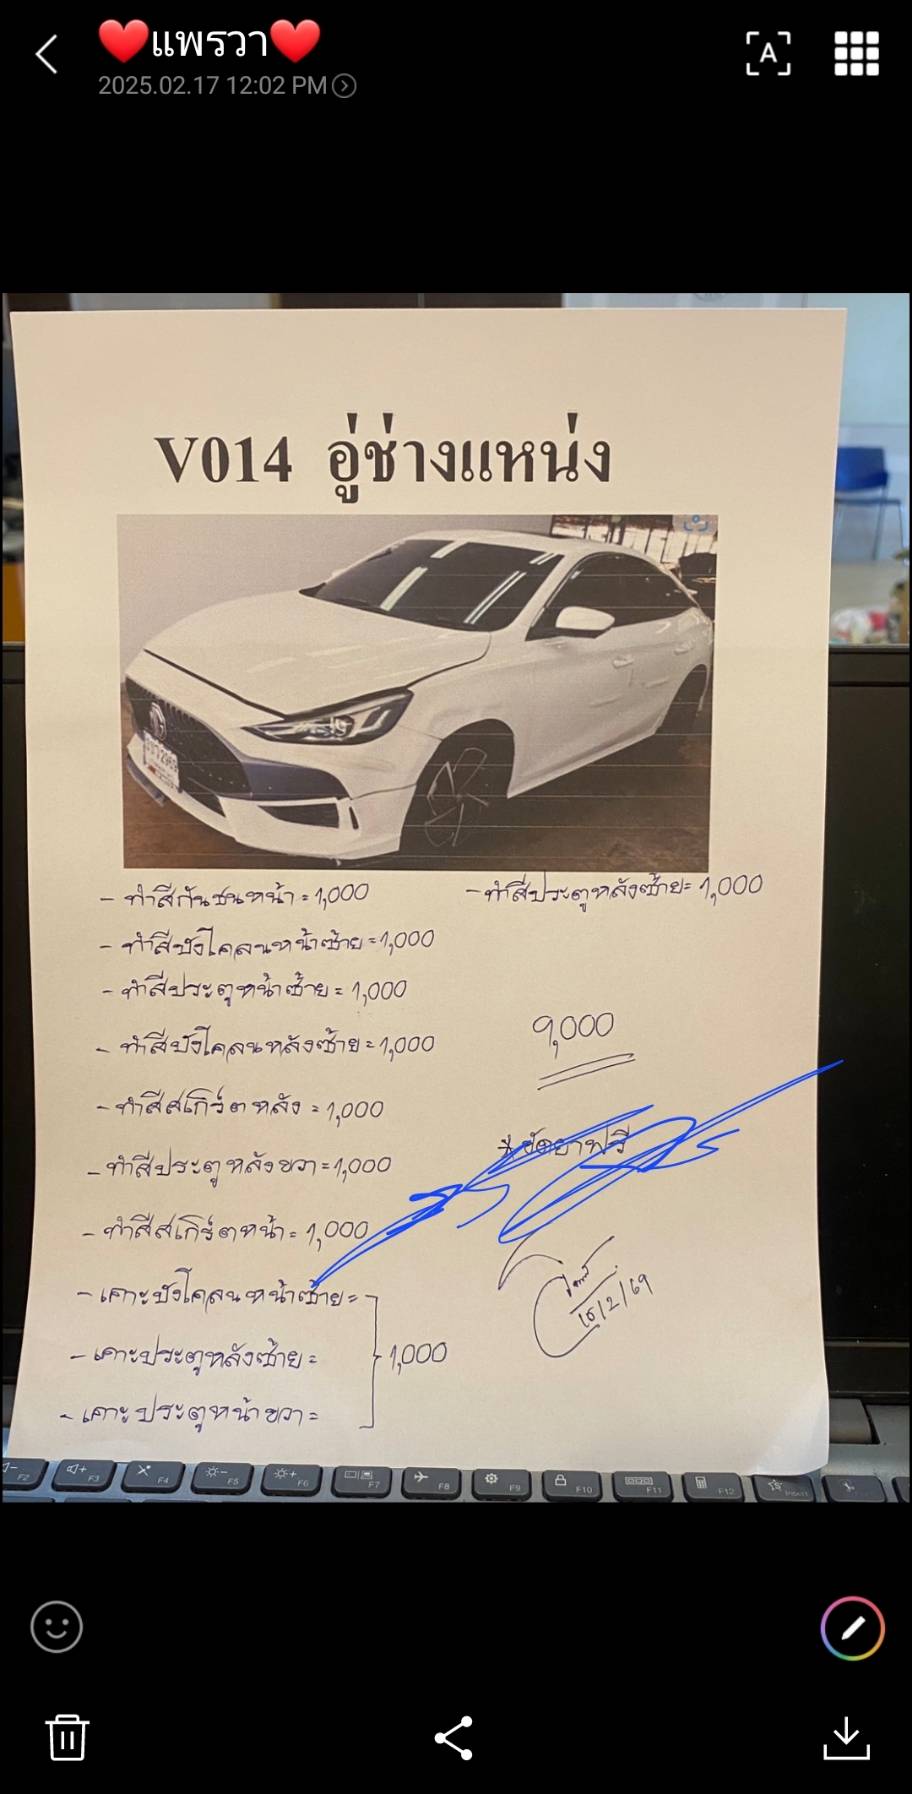 ❤️แพรวา❤️
2025.02.17 12:02 PM
A
V014 อู่ช่างแหน่ง
- ทำสีกันชนหน้า = 1,000
- ทำสีประตูหลังซ้าย = 1,000
- ทำสีบังโคลนหน้าซ้าย = 1,000
- ทำสีประตูหน้าซ้าย = 1,000
- ทำสีบังโคลนหลังซ้าย = 1,000
9,000
- ทำสีสเกิร์ตหลัง = 1,000
* ขัดยาฟรี
- ทำสีประตูหลังขวา = 1,000
- ทำสีสเกิร์ตหน้า = 1,000
- เคาะบังโคลนหน้าซ้าย =
- เคาะประตูหลังซ้าย =
1,000
- เคาะประตูหน้าขวา =
F2 F3 F4 F5 F6 F7 F8 F9 F10 F11 F12